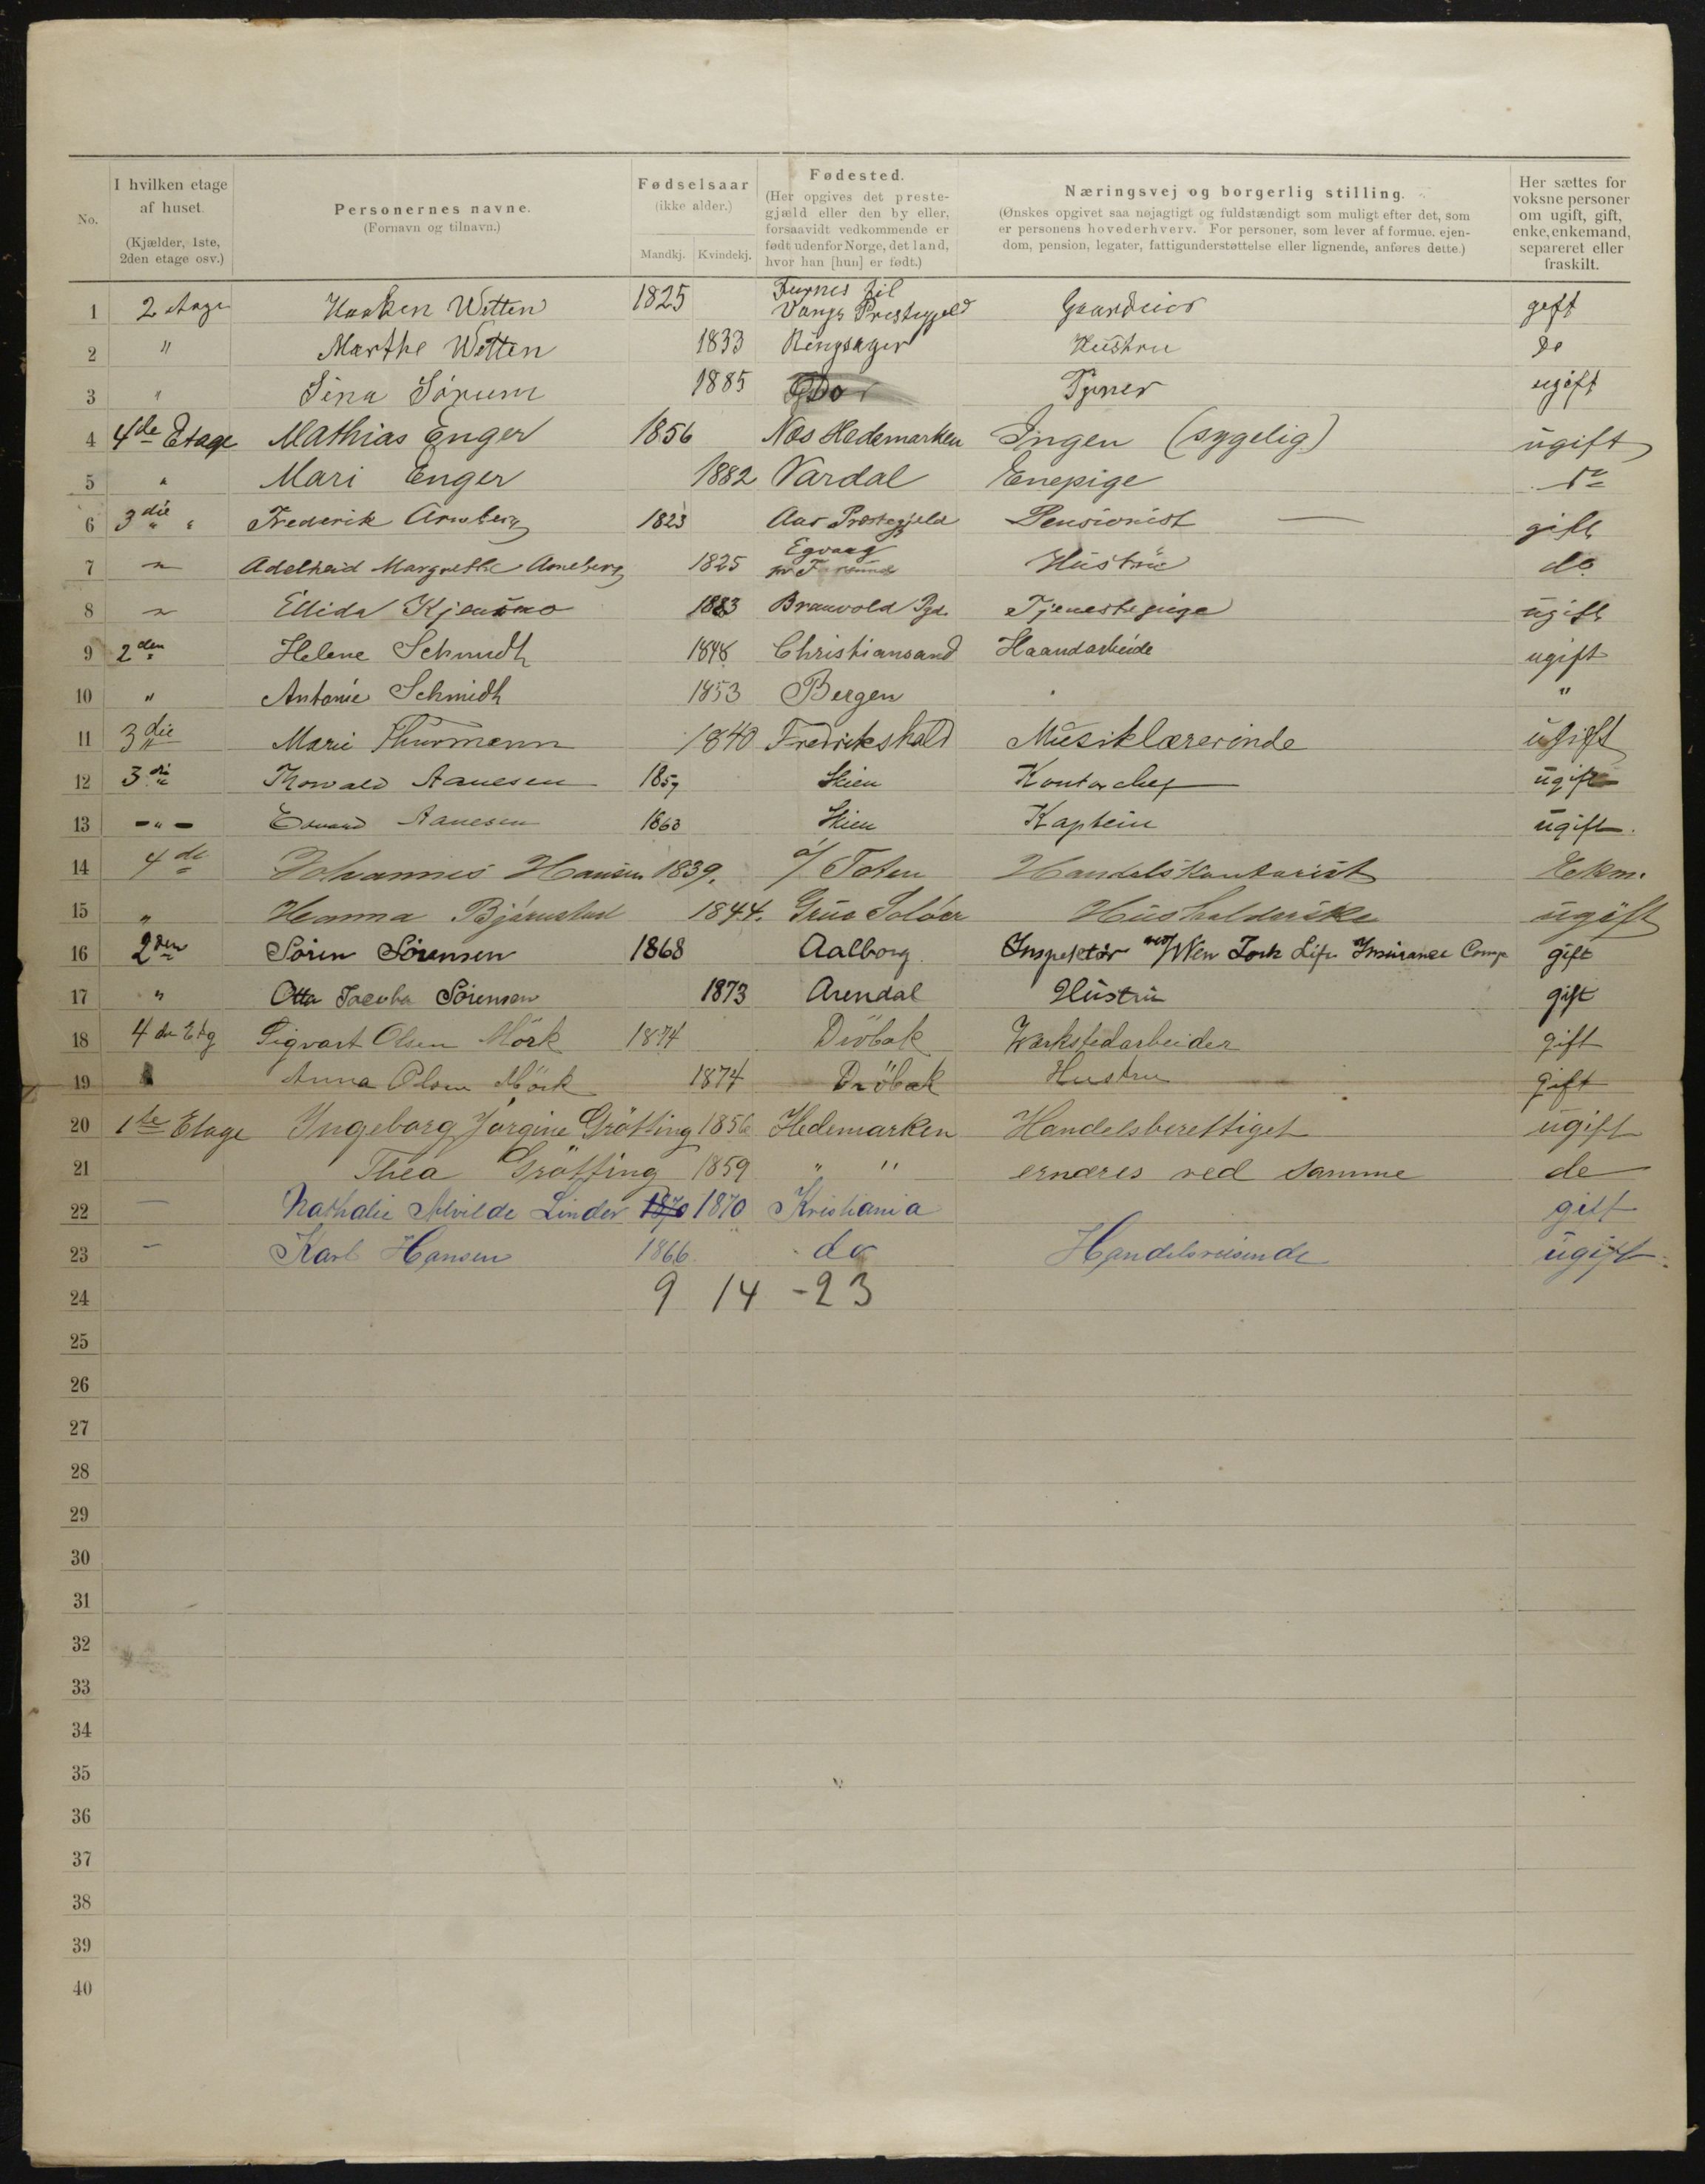 No.
I hvilken etage af huset. (Kjælder, 1ste, 2den etage osv.)
Personernes navne. (Fornavn og tilnavn.)
Fødselsaar (ikke alder.) Mandkj. Kvindekj.
Fødested. (Her opgives det prestegjæld eller den by eller, forsaavidt vedkommende er født udenfor Norge, det land, hvor han [hun] er født.)
Næringsvej og borgerlig stilling. (Ønskes opgivet saa nøjagtigt og fuldstændigt som muligt efter det, som er personens hovederhverv. For personer, som lever af formue, ejendom, pension, legater, fattigunderstøttelse eller lignende, anføres dette.)
Her sættes for voksne personer om ugift, gift, enke, enkemand, separeret eller fraskilt.
1 2 etage Haaken Wetten 1825 Furnes til Vangs Prestegjeld Gaardeier gift
2 " Marthe Wetten 1833 Ringsager Hustru Do
3 " Sina Sørum 1885 Do Tjener ugift
4 4de Etage Mathias Enger 1856 Næs Hedemarken Ingen (sygelig) ugift
5 " Mari Enger 1882 Vardal Enepige do
6 3die " " Frederik Arneberg 1823 Aas Prestegjeld Pensionist gift
7 " Adelheid Margrethe Arneberg 1825 Egvaag Hustru do
8 " Ellida 1883 Branvold Pgd. Tjenestepige ugift
9 2den Helene Schmidt 1848 Christiansand Haandarbeide ugift
10 " Antonie Schmidt 1853 Bergen " "
11 3die Marie Thurmann 1840 Fredrikshald Musiklærerinde ugift
12 3die Thorvald Aanesen 1859 Skien Kontorchef ugift
13 - " - Edvard Aanesen 1863 Skien Kaptein ugift.
14 4de Johannes Hansen 1839. ø/ Toten Handelskontorist Ekm.
15 " Hanna Bjørnstad 1844. Grue Soløer Husholderske ugift
16 2den Søren Sørensen 1868 Aalborg. Inspektør ved/ New York Life Insurance Comp gift
17 " Otta Jacoba Sørensen 1873 Arendal Hustru gift
18 4de Etg Sigvart Olsen Mörk 1874 Dröbak Verkstedarbeider gift
19 Anna Olsen Mörk 1874 Dröbak Hustru gift
20 1ste Etage Ingeborg Jørgine Grötting 1856 Hedemarken Handelsberettiget ugift
21 Thea Grötting 1859 " " ernæres ved samme do
22 — Nathalie Alvilde Linder 1870 1870 Kristiania gift
23 — Karl Hansen 1866 do Handelsreisende ugift.
24 9 14 -23
25
26
27
28
29
30
31
32
33
34
35
36
37
38
39
40